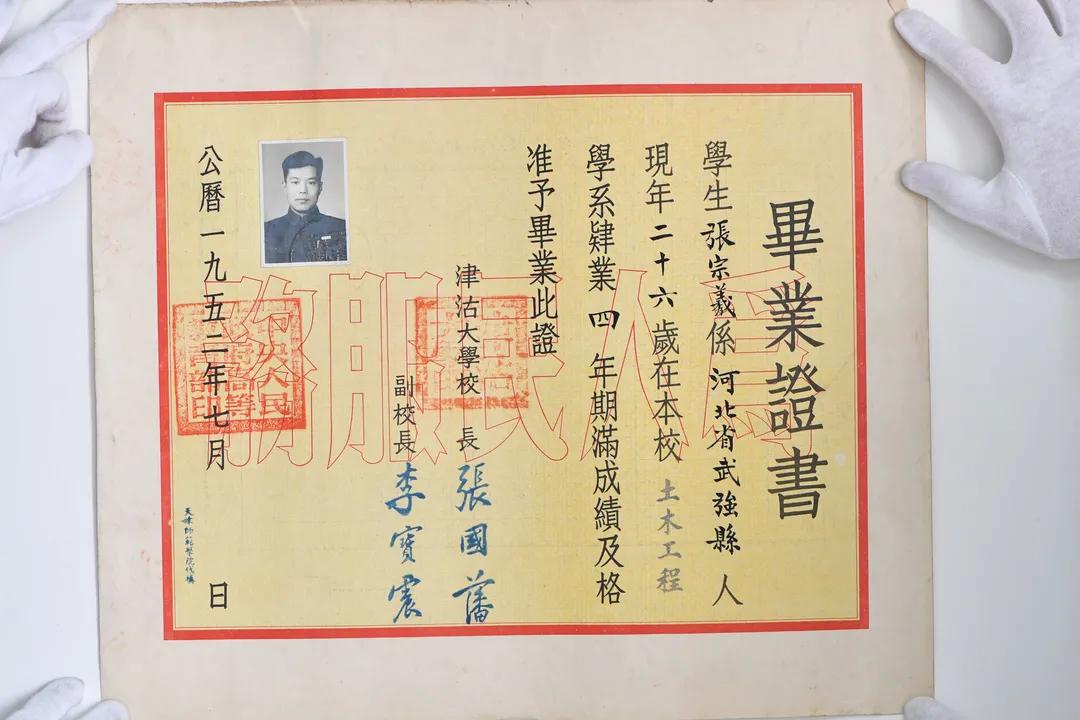 畢業證書
學生張宗羲係河北省武強縣人
現年二十六歲在本校土木工程
學系肄業四年期滿成績及格
准予畢業此證
津沽大學校 長張國藩
副校長李寶震
公曆一九五二年七月 日
天津師範學院代填
為人民服務